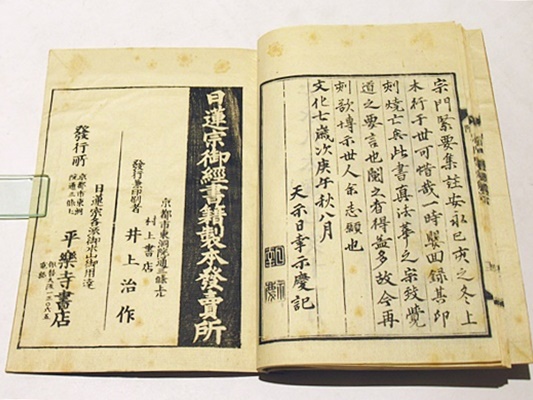 宗門緊要集註安永己亥之冬上
木行于世可惜哉一時嬰回錄其印
刻燒亡矣此書真法華之宗致覺
道之要言也閱之者得益多故今再
刻欲博示世人余志願也
文化七歲次庚午秋八月
天示日幸示慶記
日蓮宗御經書籍製本發賣所
京都市東洞院通三條上ル
村上書店
發行兼印刷者 井上治作
日蓮宗各派御本山御用達
發行所
京都市東洞
院通三條上
平樂寺書店